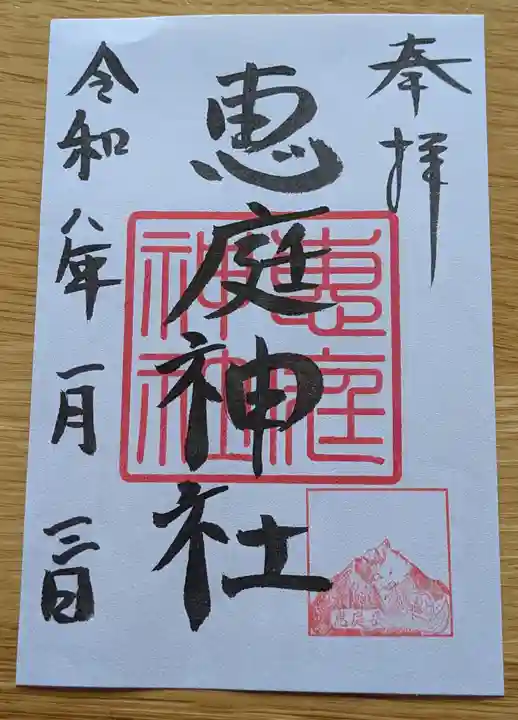 奉拝
恵庭神社
惠庭
神社
恵庭岳
令和八年一月三日